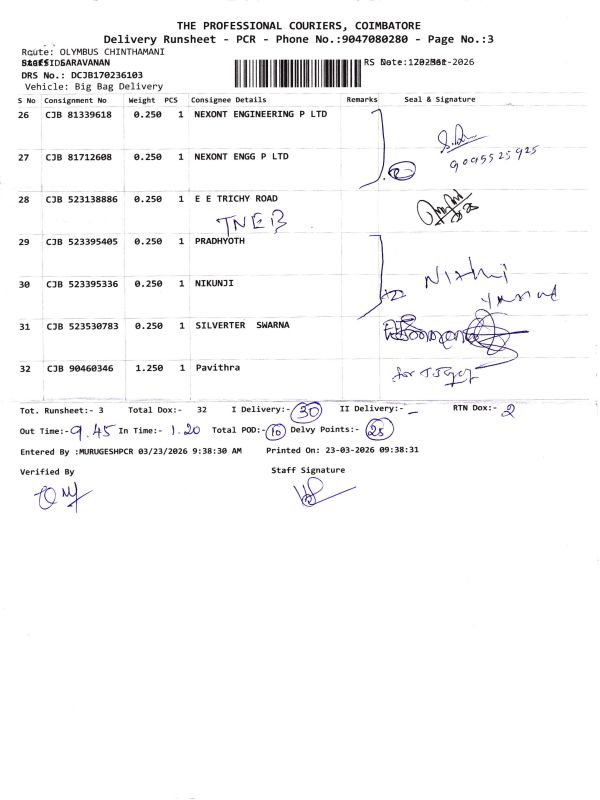 THE PROFESSIONAL COURIERS, COIMBATORE
Delivery Runsheet - PCR - Phone No.:9047080280 - Page No.:3
Route: OLYMBUS CHINTHAMANI
SARAVANAN
DRS No.: DCJB170236103
Vehicle: Big Bag Delivery
S No Consignment No Weight PCS Consignee Details Remarks Seal & Signature
26 CJB 81339618 0.250 1 NEXONT ENGINEERING P LTD
27 CJB 81712608 0.250 1 NEXONT ENGG P LTD
9095525925
28 CJB 523138886 0.250 1 E E TRICHY ROAD
TNEB
29 CJB 523395405 0.250 1 PRADHYOTH
30 CJB 523395336 0.250 1 NIKUNJI
31 CJB 523530783 0.250 1 SILVERTER SWARNA
32 CJB 90460346 1.250 1 Pavithra
Tot. Runsheet:- 3 Total Dox:- 32 I Delivery:- 30 II Delivery:- - RTN Dox:- 2
Out Time:- 9.45 In Time:- 1.20 Total POD:- 10 Delvy Points:- 25
Entered By :MURUGESHPCR 03/23/2026 9:38:30 AM Printed On: 23-03-2026 09:38:31
Verified By Staff Signature